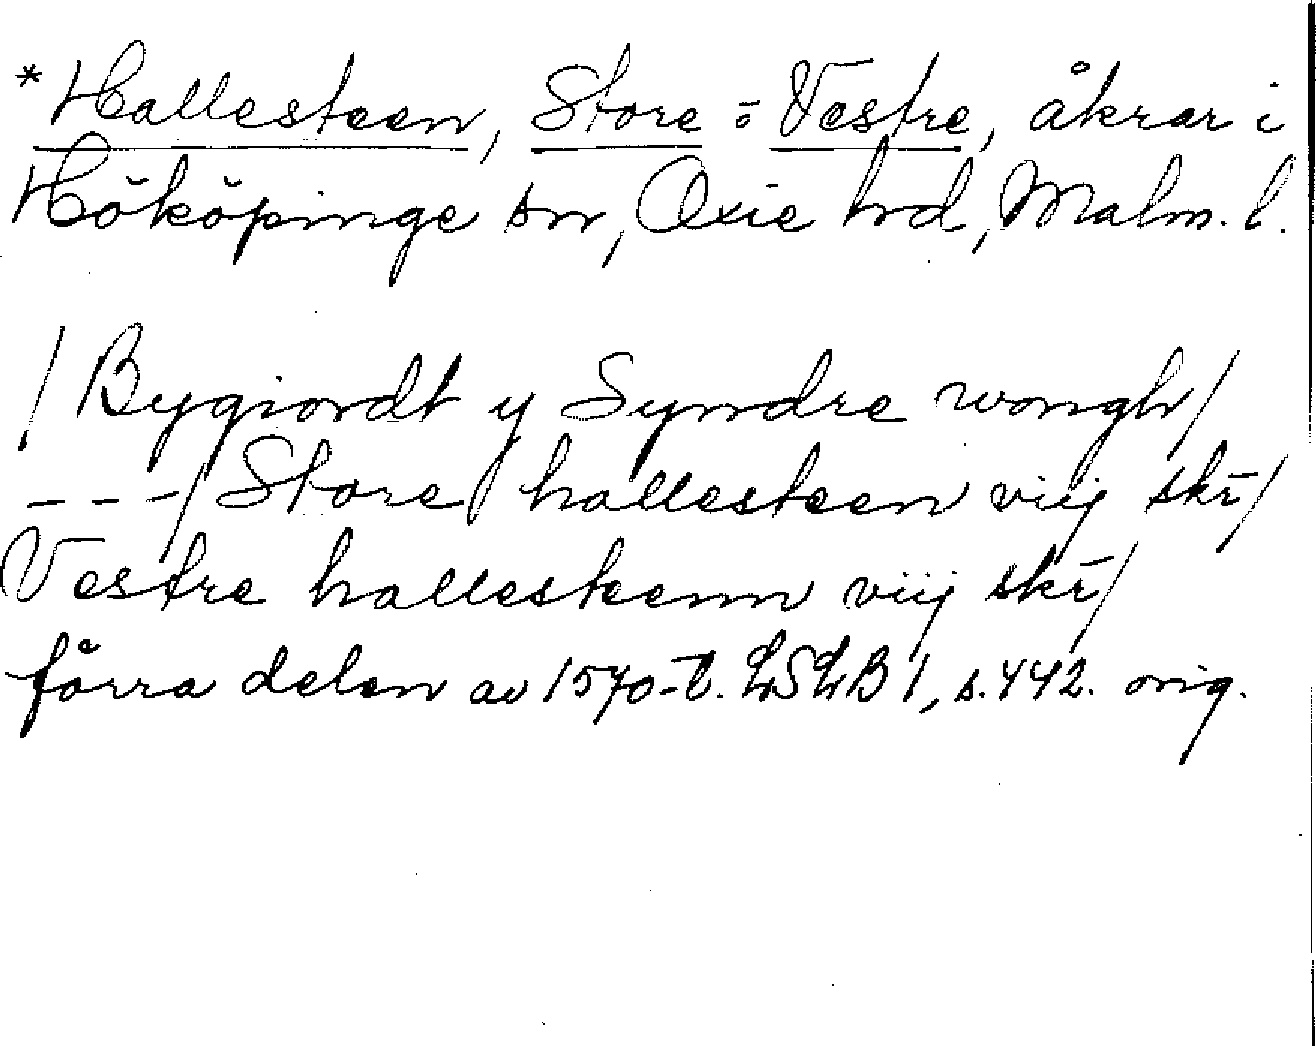 *Hallesteen, Store o Vestre, åkrar i
Hököpinge sn, Oxie hd, Malm. l.
/ Bygiordt y Syndre wongh/
---/ Store hallesteen viij skr/
Vestre hallesteenn viij skr/
förra delen av 1570-t. LSLB 1, s. 442. orig.